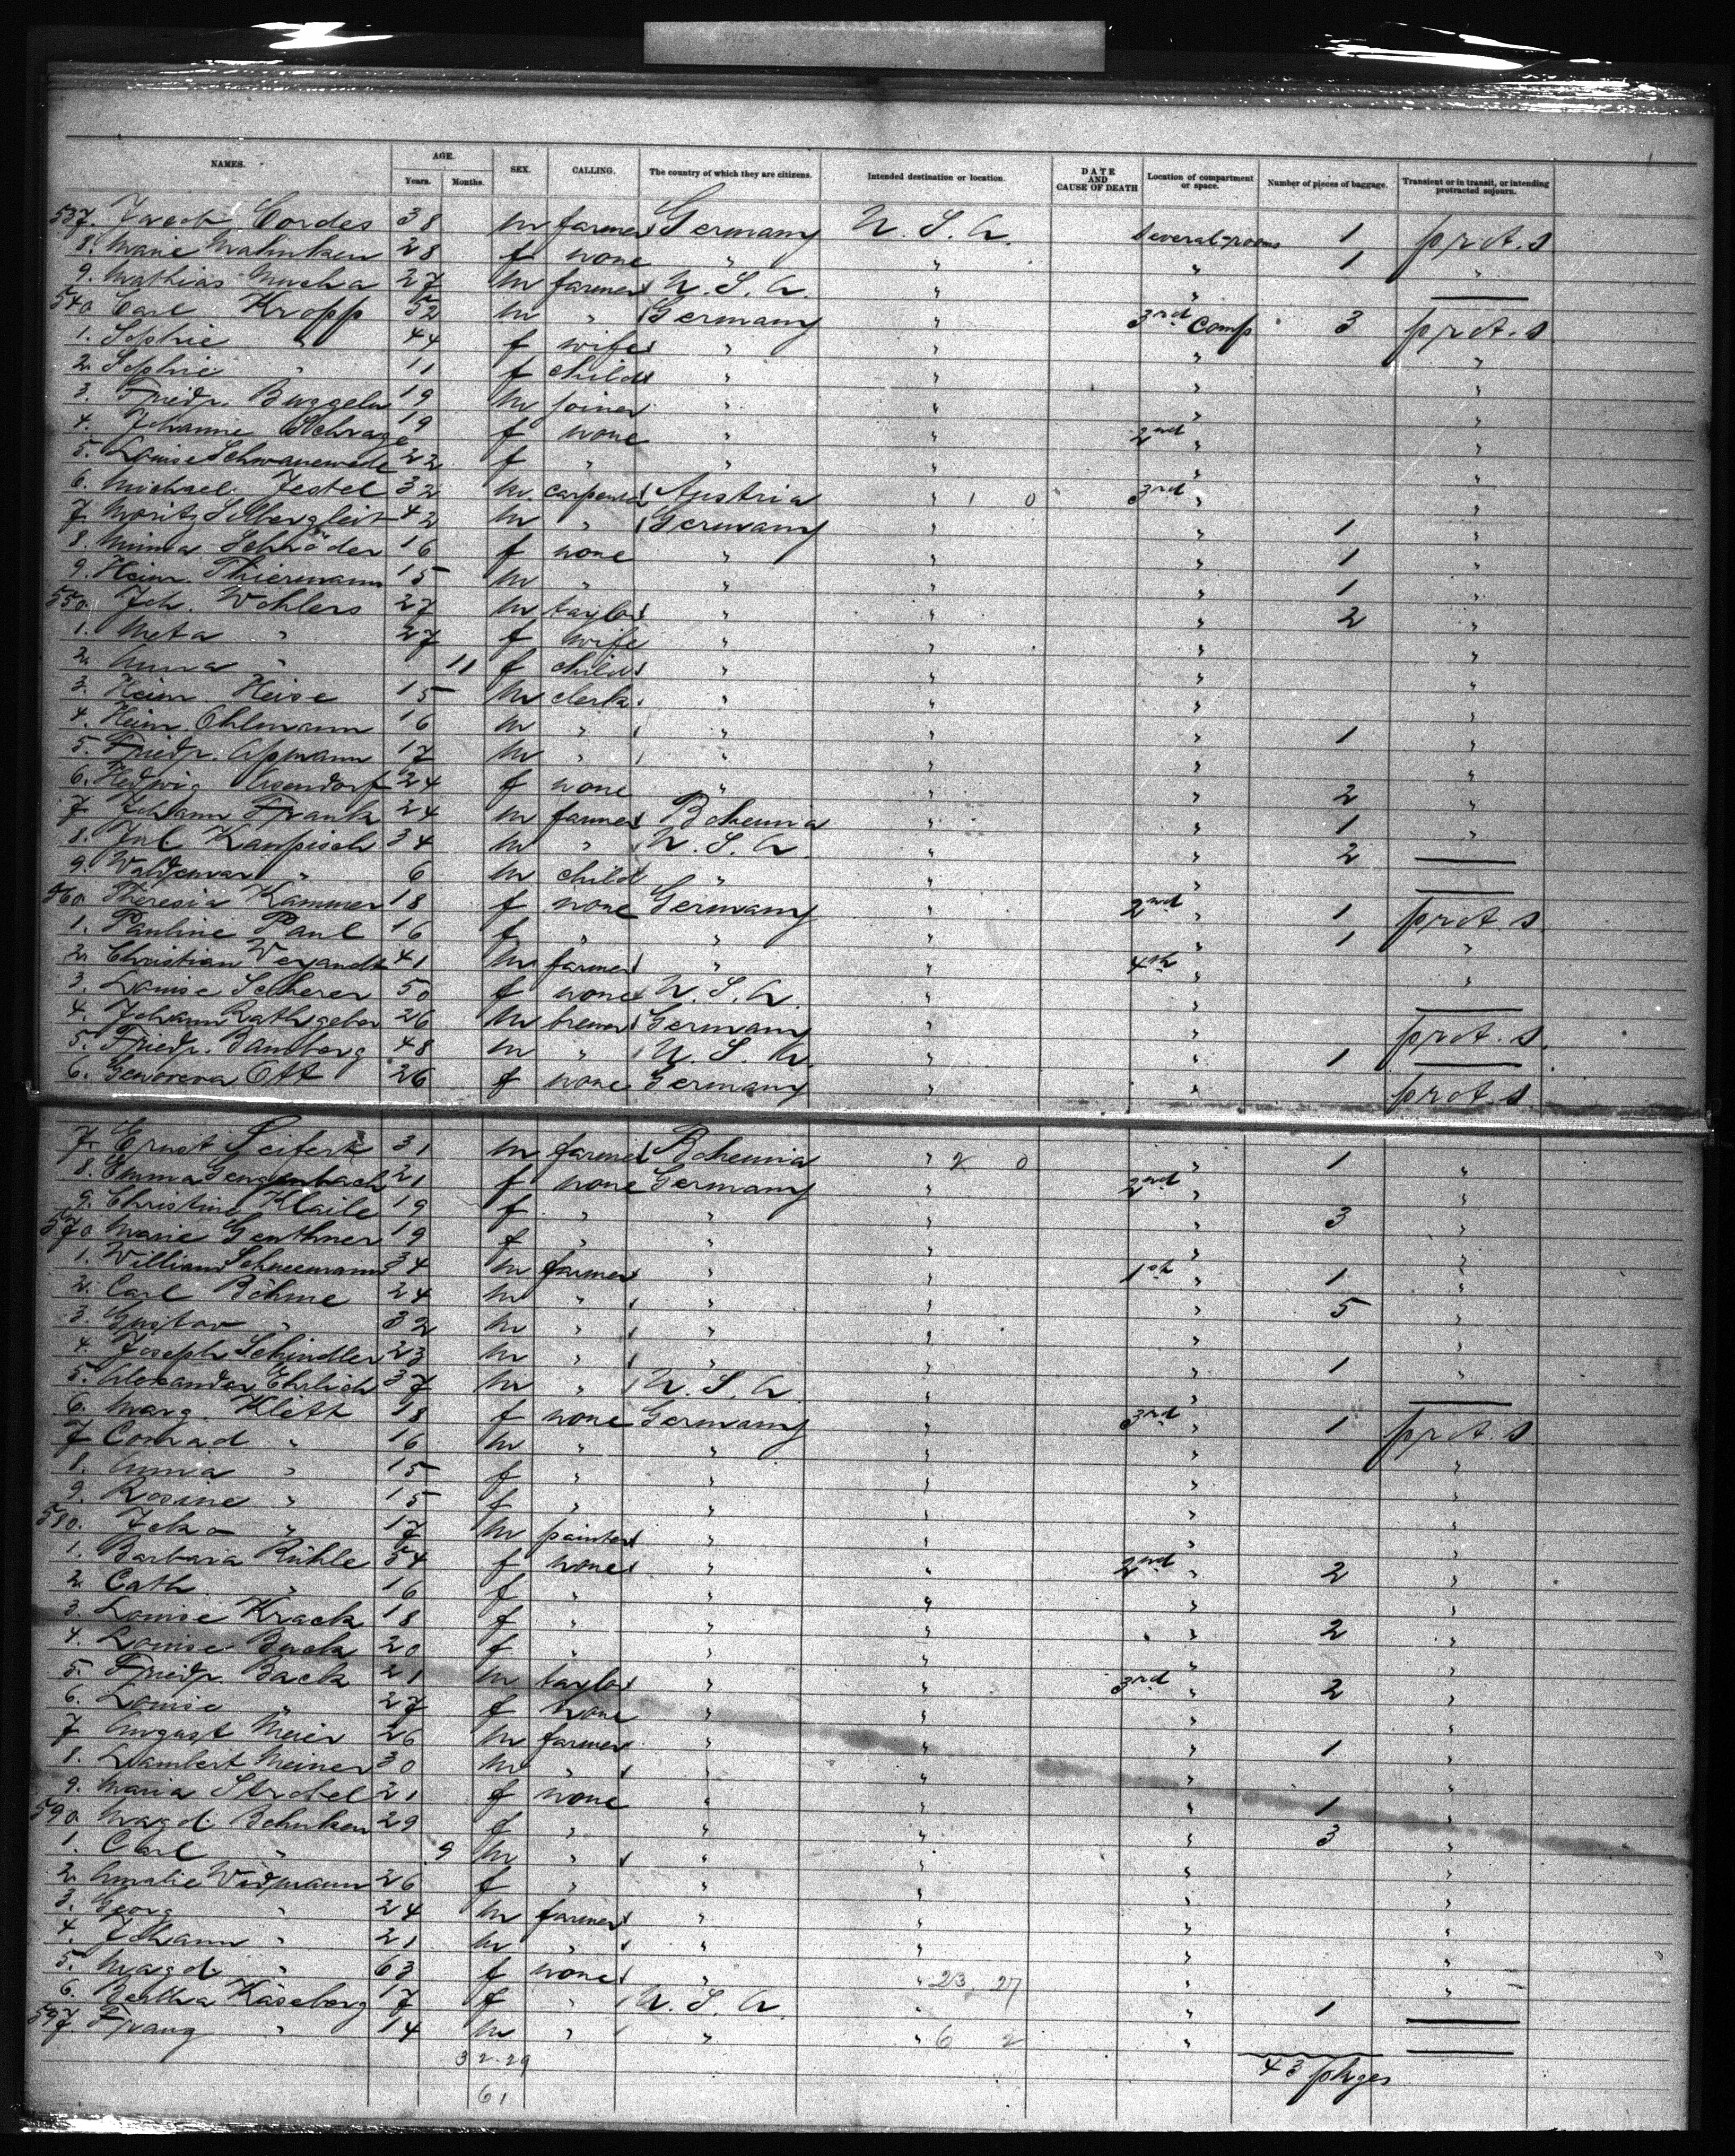 NAMES. AGE. Years. Months. SEX. CALLING. The country of which they are citizens. Intended destination or location. DATE AND CAUSE OF DEATH Location of compartment or space. Number of pieces of baggage. Transient or in transit, or intending protracted sojourn.
537. Jacob Cordes 38 m farmer Germany U. S. A. several rooms 1 prot. s
8. Marie Mahnken 28 f none " " " 1 "
9. Mathias Mucha 27 m farmer U. S. A. " "
540 Carl Kropp 52 m " Germany " 3rd comp 3 prot. s
1. Sophie " 44 f wife " " " "
2. Sophie " 11 f child " " " "
3. Friedr. Buggeln 19 m joiner " " " "
4. Johanne Schrage 19 f none " " 2nd " "
5. Louise Schwanewede 22 f " " " " "
6. Michael Jestel 32 m carpenter Austria " 1 0 3rd " "
7 Moritz Silbergleit 42 m " Germany " " 1 "
8. Minna Schröder 16 f none " " " 1 "
9. Heinr. Thiermann 15 m " " " " 1 "
550. Joh. Wohlers 27 m taylor " " " 2 "
1. Meta " 27 f wife " " " "
2. Anna " 11 f child " " " "
3. Heinr. Heise 15 m clerk " " " "
4. Heinr. Ohlmann 16 m " " " " 1 "
5. Friedr. Apmann 17 m " " " " "
6. Hedwig 24 f none " " " 2 "
7 Johann Frank 24 m farmer Bohemia " " 1 "
8. Jul. Kaupisch 34 m " U. S. A. " " 2
9. Waldemar " 6 m child " " "
560 Theresia Kammer 18 f none Germany " 2nd " 1 prot. s.
1. Pauline Paul 16 f " " " " 1 "
2. Christian Weyandt 41 m farmer " " 4th " "
3. Louise Scherer 50 f none U. S. A. " "
4. Johann Rathgeber 26 m brewer Germany " " prot. s.
5. Friedr. Bamberg 48 m " U. S. A. " " 1
6. Genoveva Ott 26 f none Germany " " prot. s
7. Ernst Seifert 31 m farmer Bohemia " 2 0 " 1 "
8. Emma Gengenbach 21 f none Germany " 2nd " "
9. Christine Klaile 19 f " " " " 3 "
570 Marie Genthner 19 f " " " " "
1. William Schneemann 34 m farmer " " 1st " 1 "
2. Carl Böhme 24 m " " " " 5 "
3. Gustav " 32 m " " " " "
4. Joseph Schindler 23 m " " " " 1 "
5. Alexander Ehrlich 37 m " U. S. A. " "
6. Marg. Klett 18 f none Germany " 3rd " 1 prot. s
7 Conrad " 16 m " " " " "
8. Anna " 15 f " " " " "
9. Rosine " 15 f " " " " "
580. " 17 m painter " " " "
1. Barbara Rühle 54 f none " " 2nd " 2 "
2. Cath. " 16 f " " " " "
3. Louise Krack 18 f " " " " 2 "
4. Louise Buck 20 f " " " " "
5. Friedr. Back 21 m taylor " " 3rd " 2 "
6. Louise " 27 f none " " " "
7 August Meier 26 m farmer " " " 1 "
8. Lambert Meiner 30 m " " " " "
9. Maria Strobel 21 f none " " " 1 "
590. Magd. Behnken 29 f " " " " 3 "
1. Carl " 9 m " " " " "
2. Amalie Widmann 26 f " " " " "
3. Georg " 24 m farmer " " " "
4. Johann " 21 m " " " " "
5. Magd. " 63 f none " " 23 27 " "
6. Bertha Käseberg 17 f " U. S. A. " " 1
597. Franz " 14 m " " " 6 2 "
32-29 43 pkges
61